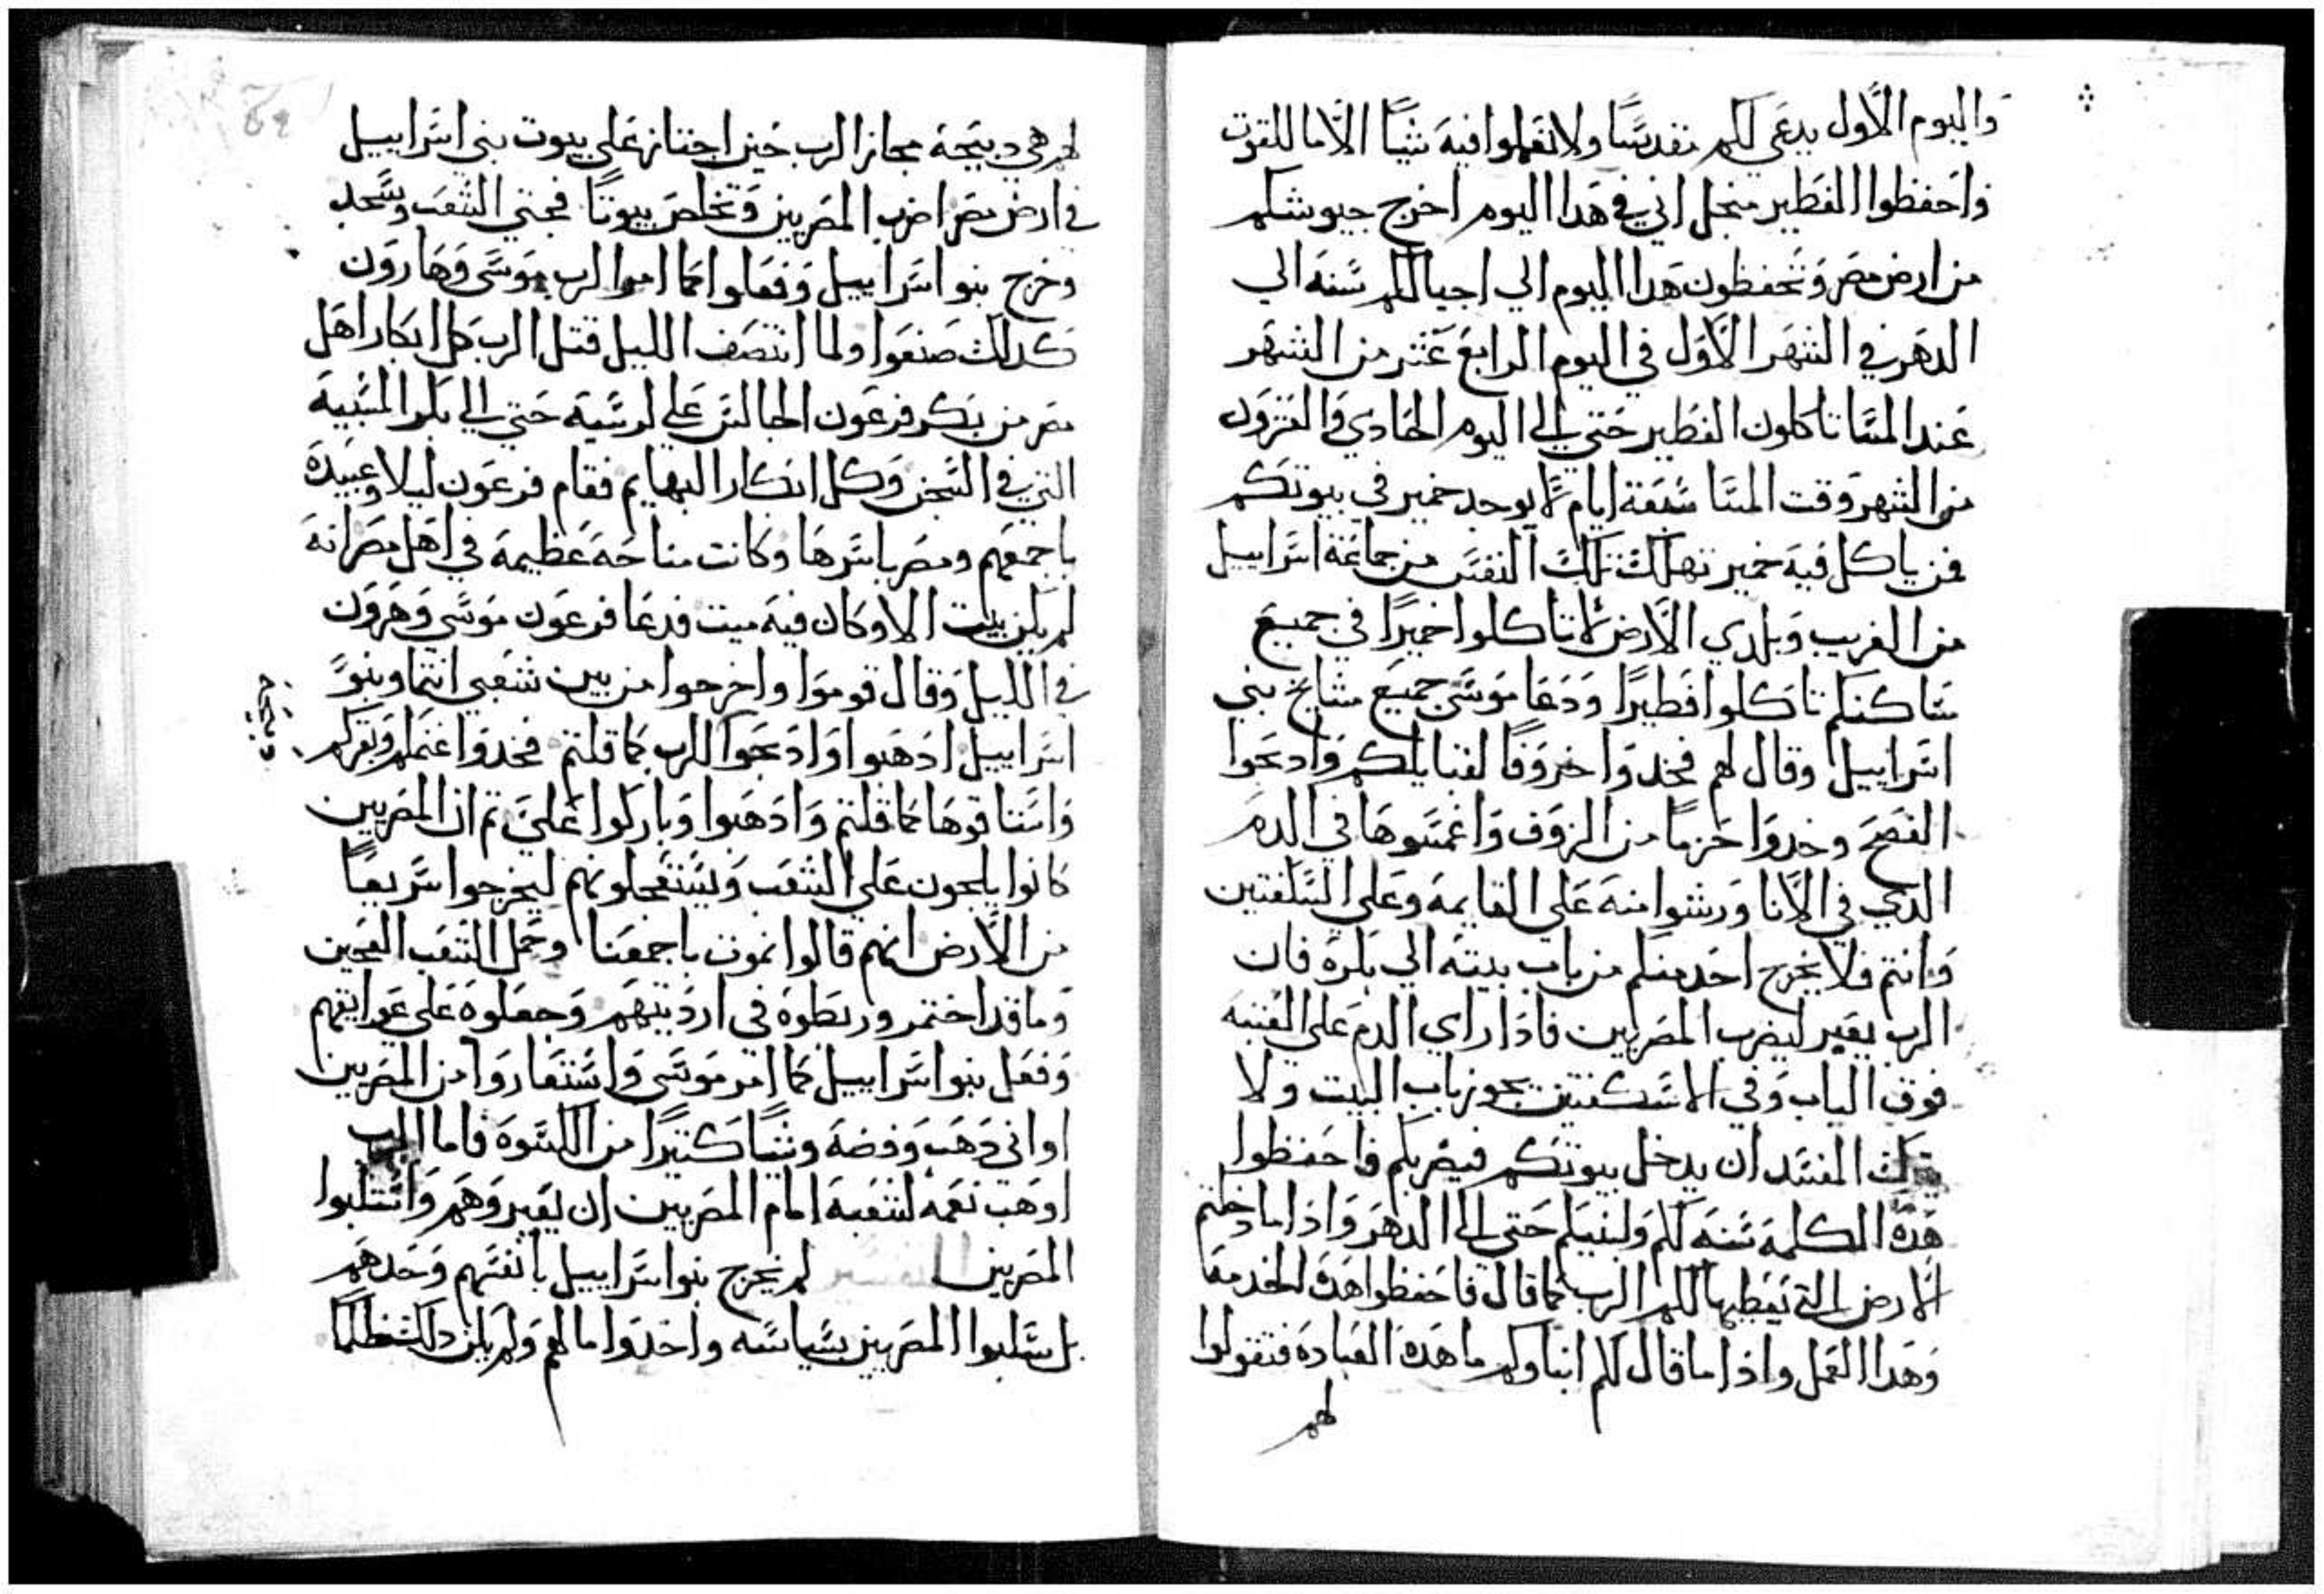 واليوم الاول يدعي لكم مقدسا ولا تعملوا فيه شيا الا ما للقوت
واحفظوا الفطير منجل اني في هدا اليوم اخرج جيوشكم
من ارض مصر وتحفظون هدا اليوم الي اجيالكم سنه الي
الدهر في الشهر الاول في اليوم الرابع عشر من الشهر
عند المسا تاكلون الفطير حتي الي اليوم الحادي والعشرون
من الشهر وقت المسا سبعة ايام لا يوجد خمير في بيوتكم
فمن ياكل فيه خمير تهلك تلك النفس من جماعة اسراييل
من الغريب وبلدي الارض لا تاكلوا خميرا في جميع
مساكنكم تاكلوا فطيرا ودعا موسي جميع مشايخ بني
اسراييل وقال لهم فخدوا خروفا لقبايلكم وادبحوا
الفصح وخدوا حزما من الزوف واغمسوها في الدم
الدي في الانا ورشوا منه علي القايمه وعلي السكفتين
وانتم فلا يخرج احد منكم من باب بيته الي بكره فان
الرب يعبر ليضرب المصريين فادا راي الدم علي العتبه
فوق الباب وفي الاسكفتين يجوز باب البيت ولا
يترك المفسد ان يدخل بيوتكم فيضربكم فاحفظوا
هده الكلمه سنه لكم ولبنيكم حتي الي الدهر واذا ما دخلتم
الارض التي يعطيها لكم الرب كما قال فاحفظوا هده الخدمه
وهدا العمل واذا ما قال لكم ابناوكم ما هده العباده فتقولوا
لهم
لهم هي دبيحة مجاز الرب حين اجتاز علي بيوت بني اسراييل
في ارض مصر اضرب المصريين وتخلص بيوتنا فجتي الشعب وسجد
وخرج بنو اسراييل وفعلوا كما امر الرب موسي وهارون
كدلك صنعوا ولما انتصف الليل قتل الرب كل ابكار اهل
مصر من بكر فرعون الجالس علي كرسيه حتي الي بكر المسبيه
التي في السجن وكل ابكار البهايم فقام فرعون ليلا وعبيده
باجمعهم ومصر باسرها وكانت مناحه عظيمه في اهل مصر انه
لم يكن بيت الا وكان فيه ميت فدعا فرعون موسي وهرون
في الليل وقال قوموا واخرجوا من بين شعبي انتما وبنو
اسراييل ادهبوا وادبحوا للرب كما قلتم فخدوا غنمكم وبقركم
واستاقوها كما قلتم وادهبوا وباركوا علي ثم ان المصريين
كانوا يلحون علي الشعب ويستعجلونهم ليخرجوا سريعا
من الارض انهم قالوا نموت باجمعنا وحمل الشعب العجين
وما قد اختمر وربطوه في ارديتهم وجعلوه علي عواتقهم
وفعل بنو اسراييل كما امر موسي واستعاروا من المصريين
اواني دهب وفضه وشيا كثيرا من الكسوه فاما الرب
اوهب نعمه لشعبه امام المصريين ان يعيروهم واستلبوا
المصريين لم يخرج بنو اسراييل بانفسهم وحدهم
بل سلبوا المصريين بسياسه واخدوا ما لهم ولم يكن دلك ظلما